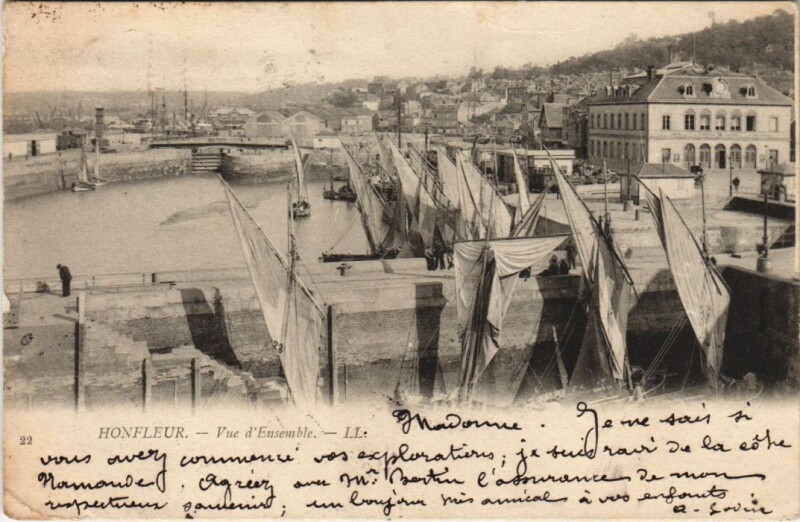 22 HONFLEUR. — Vue d'Ensemble. — LL.
Madame. Je ne sais si
vous avez commencé vos explorations; je suis ravi de la côte
Normande. Agréez avec Mr Bertin l'assurance de mon
respectueux souvenir; un bonjour très amical à vos enfants